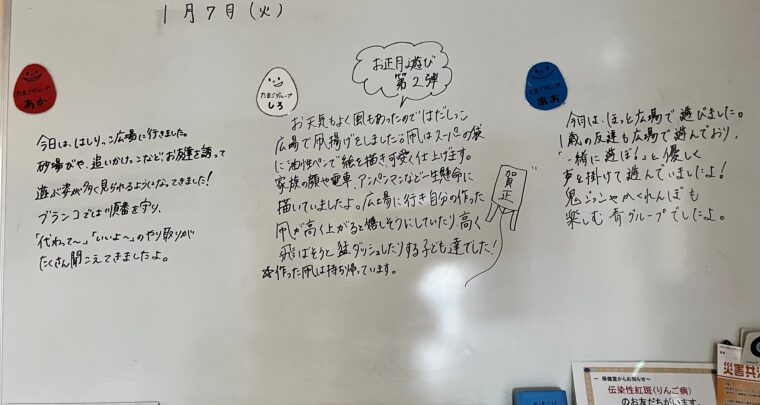 1月7日(火)
たまごグループ
あか
今日は、はしりっこ広場に行きました。
砂場びや、追いかけっこなど、お友達を誘って
遊ぶ姿が多く見られるようになってきました!
ブランコでは順番を守り、
「代わって〜」「いいよ〜」のやり取りが
たくさん聞こえてきましたよ。
たまごグループ
しろ
お正月遊び
第2弾
お天気もよく風もあったのではだしっこ
広場で凧揚げをしました。凧はスーパーの袋
に油性ペンで絵を描き可愛く仕上げます。
家族の顔や電車、アンパンマンなど一生懸命に
描いていましたよ。広場に行き自分の作った
凧が高く上がると嬉しそうにしていたり、高く
飛ばそうと猛ダッシュしたりする子ども達でした!
☆作った凧は持ち帰っています。
賀正
たまごグループ
あお
今日は、ほっと広場で遊びました。
1歳の友達も広場で遊んでおり、
「一緒に遊ぼう」と優しく
声を掛けて遊んでいましたよ!
鬼ごっこやかくれんぼも
楽しむ青グループでしたよ。
ー保健室からお知らせ〜
伝染性紅斑(りんご病)
のお友だちがいます。
災害共済